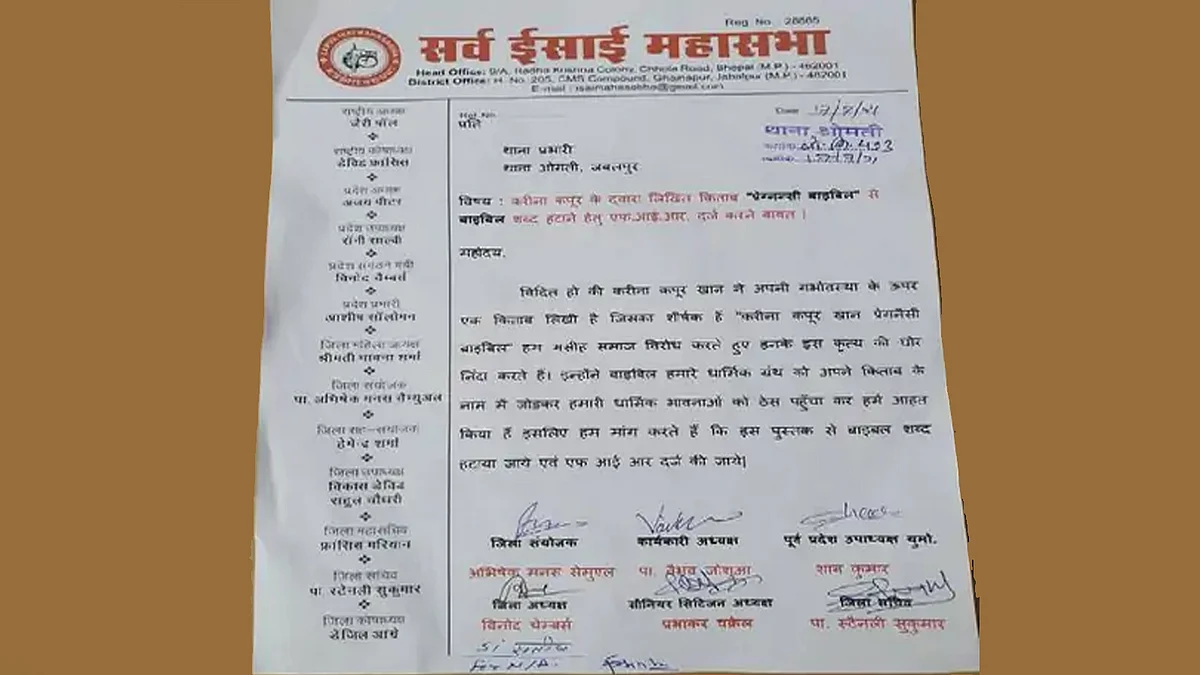 Reg No. 28665
सर्व ईसाई महासभा
Head Office: 9/A, Radha Krishna Colony, Chhola Road, Bhopal (M.P.) - 462001
District Office: H. No. 205, CMS Compound, Ghamapur, Jabalpur (M.P.) - 482001
E-mail : isaimahasabha@gmail.com
राष्ट्रीय अध्यक्ष
जैरी पॉल
राष्ट्रीय कोषाध्यक्ष
डेविड फ्रांसिस
प्रदेश अध्यक्ष
अजय पीटर
प्रदेश उपाध्यक्ष
रॉनी साल्वी
प्रदेश संगठन मंत्री
विनोद चैम्बर्स
प्रदेश प्रभारी
आशीष सॉलोमन
जिला महिला अध्यक्ष
श्रीमती भावना शर्मा
जिला संयोजक
पा. अभिषेक मनस सैम्युअल
जिला सह-संयोजक
हेमेन्द्र शर्मा
जिला उपाध्यक्ष
विकास डेविड
राहुल चौधरी
जिला महासचिव
फ्रांसिस मरियान
जिला सचिव
पा. स्टेनली सुकुमार
जिला कोषाध्यक्ष
Ref No.
Date
थाना ओमती
प्रति
थाना प्रभारी
थाना ओमती, जबलपुर
विषय : करीना कपूर के द्वारा लिखित किताब "प्रेग्नन्सी बाइबिल" से
बाइबिल शब्द हटाने हेतु एफ.आई.आर. दर्ज करने बावत।
महोदय,
विदित हो की करीना कपूर खान ने अपनी गर्भावस्था के ऊपर
एक किताब लिखी है जिसका शीर्षक हैं "करीना कपूर खान प्रेगनैंसी
बाइबिल" हम मसीह समाज विरोध करते हुए इनके इस कृत्य की घोर
निंदा करते हैं। इन्होंने बाइबिल हमारे धार्मिक ग्रंथ को अपने किताब के
नाम में जोडकर हमारी धार्मिक भावनाओं को ठेस पहुँचा कर हमें आहत
किया हैं इसलिए हम मांग करते हैं कि इस पुस्तक से बाइबल शब्द
हटाया जाये एवं एफ आई आर दर्ज की जाये|
जिला संयोजक कार्यकारी अध्यक्ष पूर्व प्रदेश उपाध्यक्ष युमो.
अभिषेक मनस सेमुएल पा. वैभव जोशुआ शान कुमार
जिला अध्यक्ष सीनियर सिटिजन अध्यक्ष जिला सचिव
विनोद चेम्बर्स प्रभाकर चक्रेल पा. स्टैनली सुकुमार